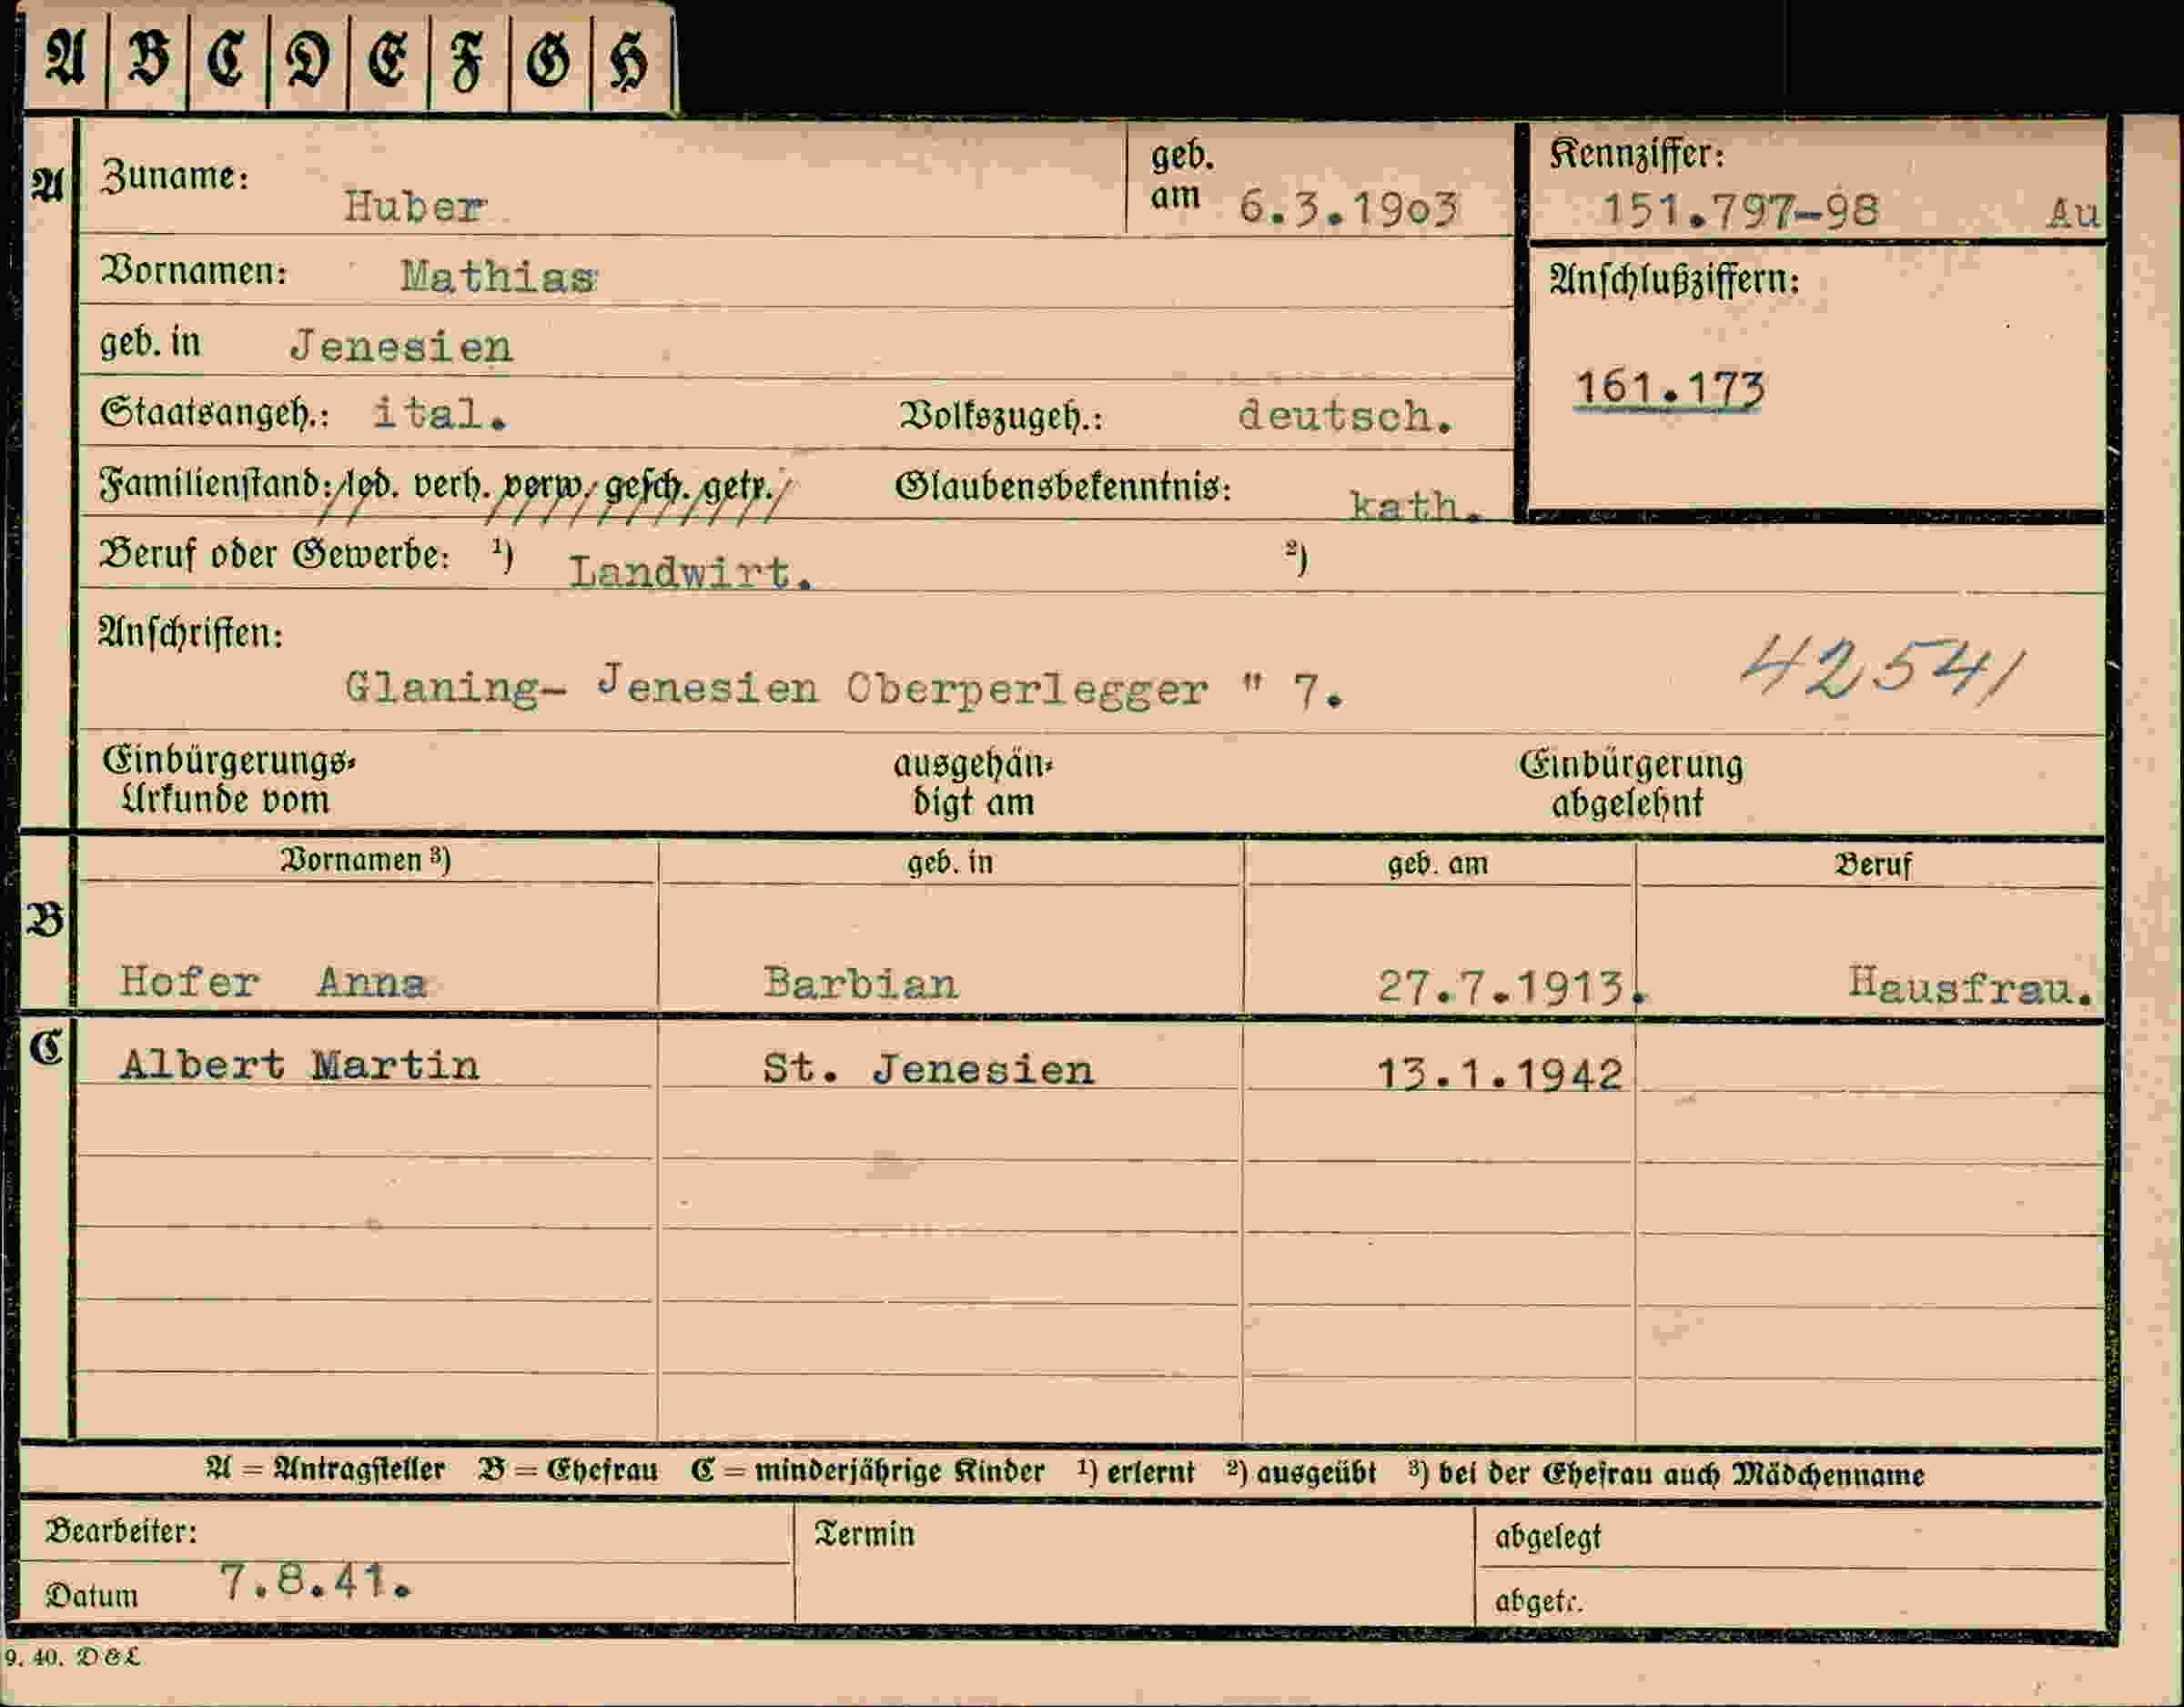 A B C D E F G H
A
Zuname: Huber
geb. am 6.3.19o3
Kennziffer:
151.797-98 Au
Vornamen: Mathias
Anschlußziffern:
161.173
geb. in Jenesien
Staatsangeh.: ital. Volkszugeh.: deutsch.
Familienstand: led. verh. verw. gesch. getr. Glaubensbekenntnis: kath.
Beruf oder Gewerbe: ¹) Landwirt. ²)
Anschriften:
Glaning- Jenesien Oberperlegger " 7.
42541
Einbürgerungs-
Urkunde vom
ausgehän-
digt am
Einbürgerung
abgelehnt
B
Vornamen ³) geb. in geb. am Beruf
Hofer Anna Barbian 27.7.1913. Hausfrau.
C
Albert Martin St. Jenesien 13.1.1942
A = Antragsteller B = Ehefrau C = minderjährige Kinder ¹) erlernt ²) ausgeübt ³) bei der Ehefrau auch Mädchenname
Bearbeiter:
Termin
abgelegt
Datum 7.8.41.
abgetr.
9. 40. D & L